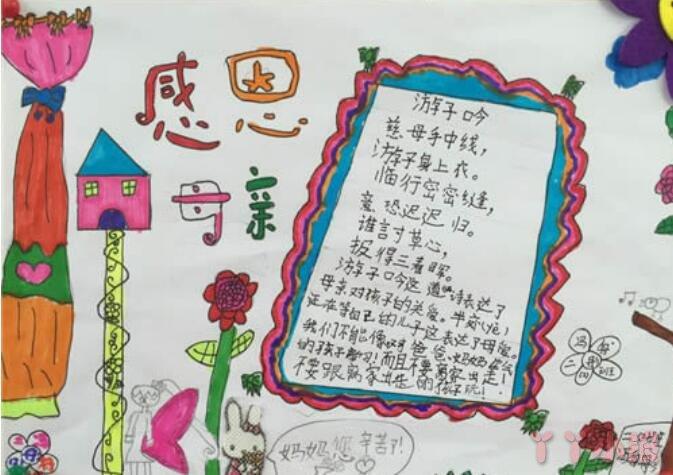 感恩
母亲
游子吟
慈母手中线，
游子身上衣。
临行密密缝，
意恐迟迟归。
谁言寸草心，
报得三春晖。
游子吟这道诗表达了
母亲对孩子的关爱。半夜
还在等自己的儿子这表达了母爱。
我们不能像 爸爸妈妈
的孩子学习！而且不要离家出走！
不要跟离家出走的孩子玩！
妈妈您辛苦了！
丫丫小报